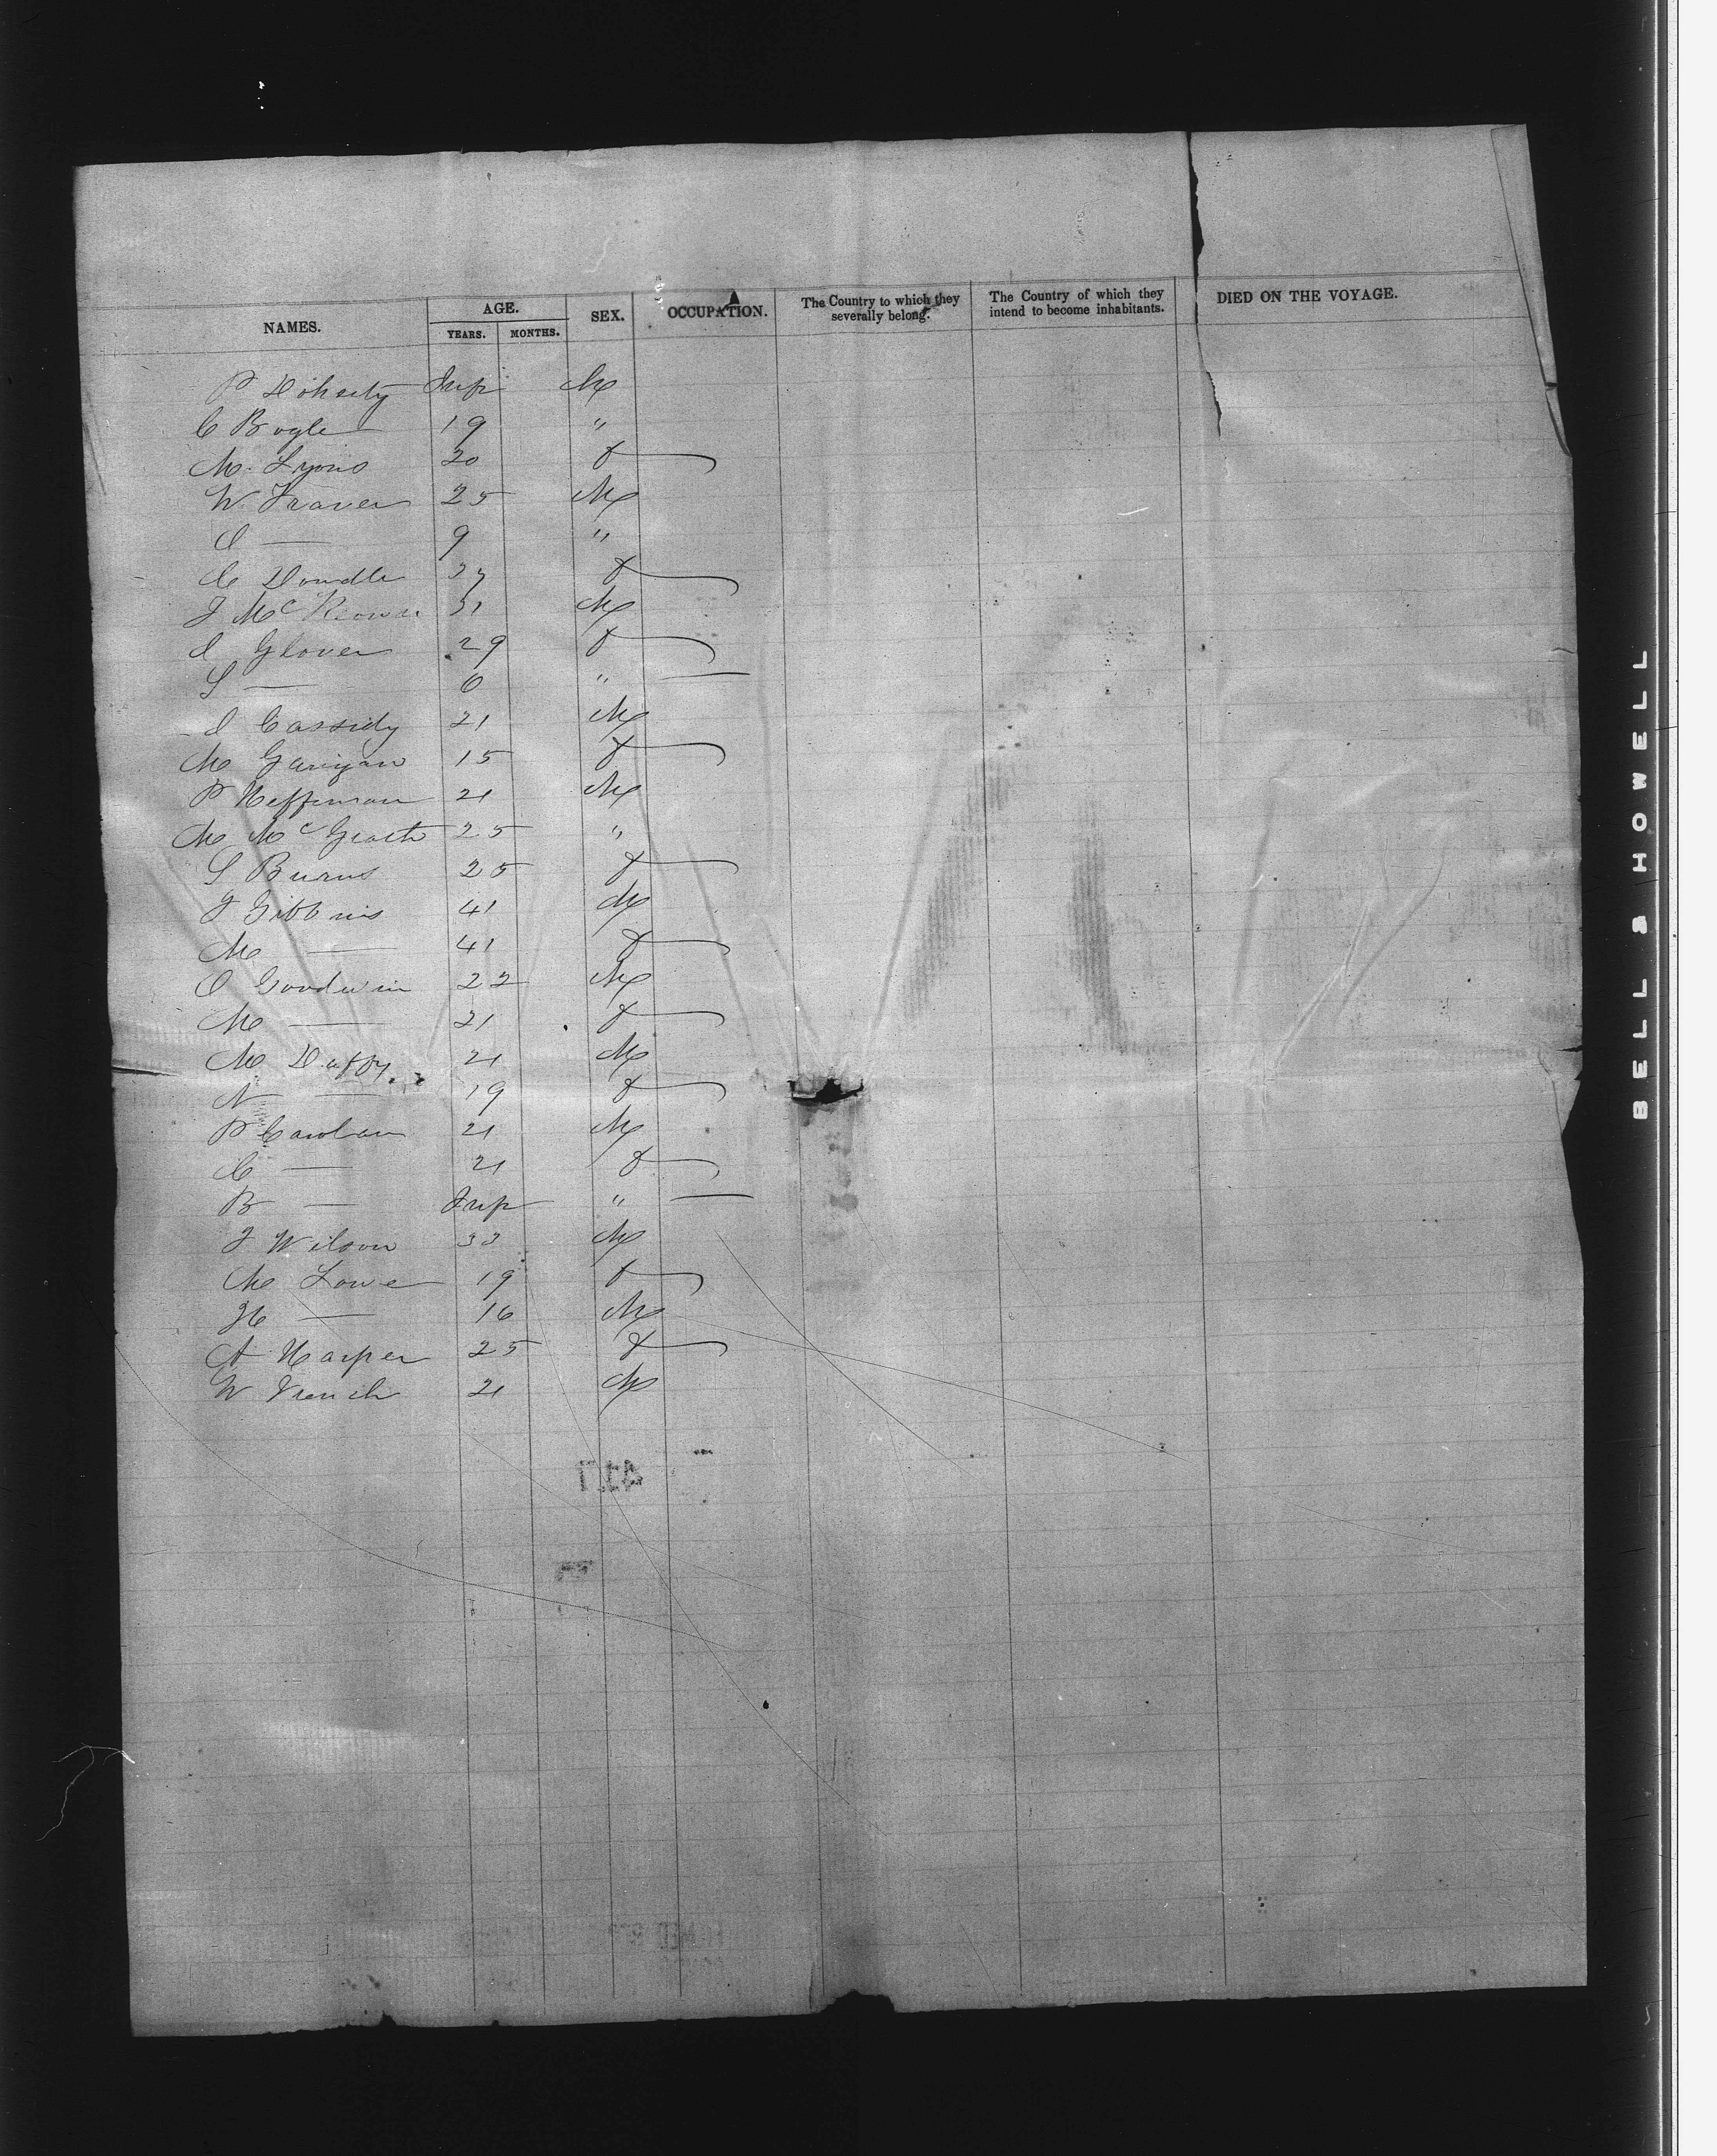 NAMES. AGE. YEARS. MONTHS. SEX. OCCUPATION. The Country to which they severally belong. The Country of which they intend to become inhabitants. DIED ON THE VOYAGE.
P Dohety Inf M
C Bogle 19 "
M. Lyons 20 F
W. Traver 25 M
— 9 "
C Dowdle F
J McKeown 31 M
Glover 29 F
S — 6 "
Cassidy 21 M
M Garigan 15 F
P Heffernan 21 M
M McGrath 25 "
S Burns 25 F
J Gibbins 41 M
M — 41 F
O Goodwin 22 M
M — 21 F
M Duffy 21 M
N — 19 F
P Carolan 21 M
C — 21 F
B — Inf "
J Wilson 33 M
M Lowe 19 F
H — 16 M
A Harper 25 F
W French 21 M
417
BELL & HOWELL